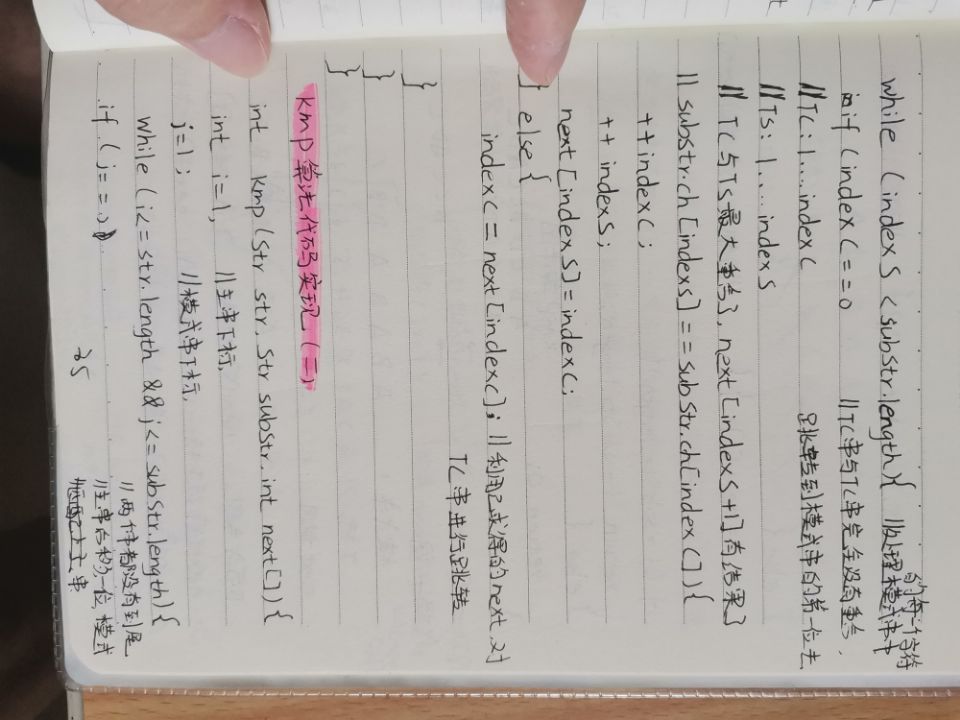 while (indexS < substr.length){ //处理模式串中的每个字符
if (indexC == 0 //TC串与TC串完全没有重合,
//TC: 1....indexC 跳转到模式串的第一位去
//TS: 1....indexS
// TC与TS最大重合}, next[indexS+1]有结果}
// substr.ch[indexS] == substr.ch[indexC]){
++indexC;
++indexS;
next[indexS]=indexC;
} else {
indexC = next[indexC]; //利用已求得的next,对
TC串进行跳转
}
}
}
kmp算法代码实现(二)
int kmp(Str str, Str substr, int next[]){
int i=1, //主串下标,
j=1; //模式串下标,
while (i<=str.length && j<= substr.length){
//两个串都没有到尾
if (j==0 //主串后移一位,模式
35